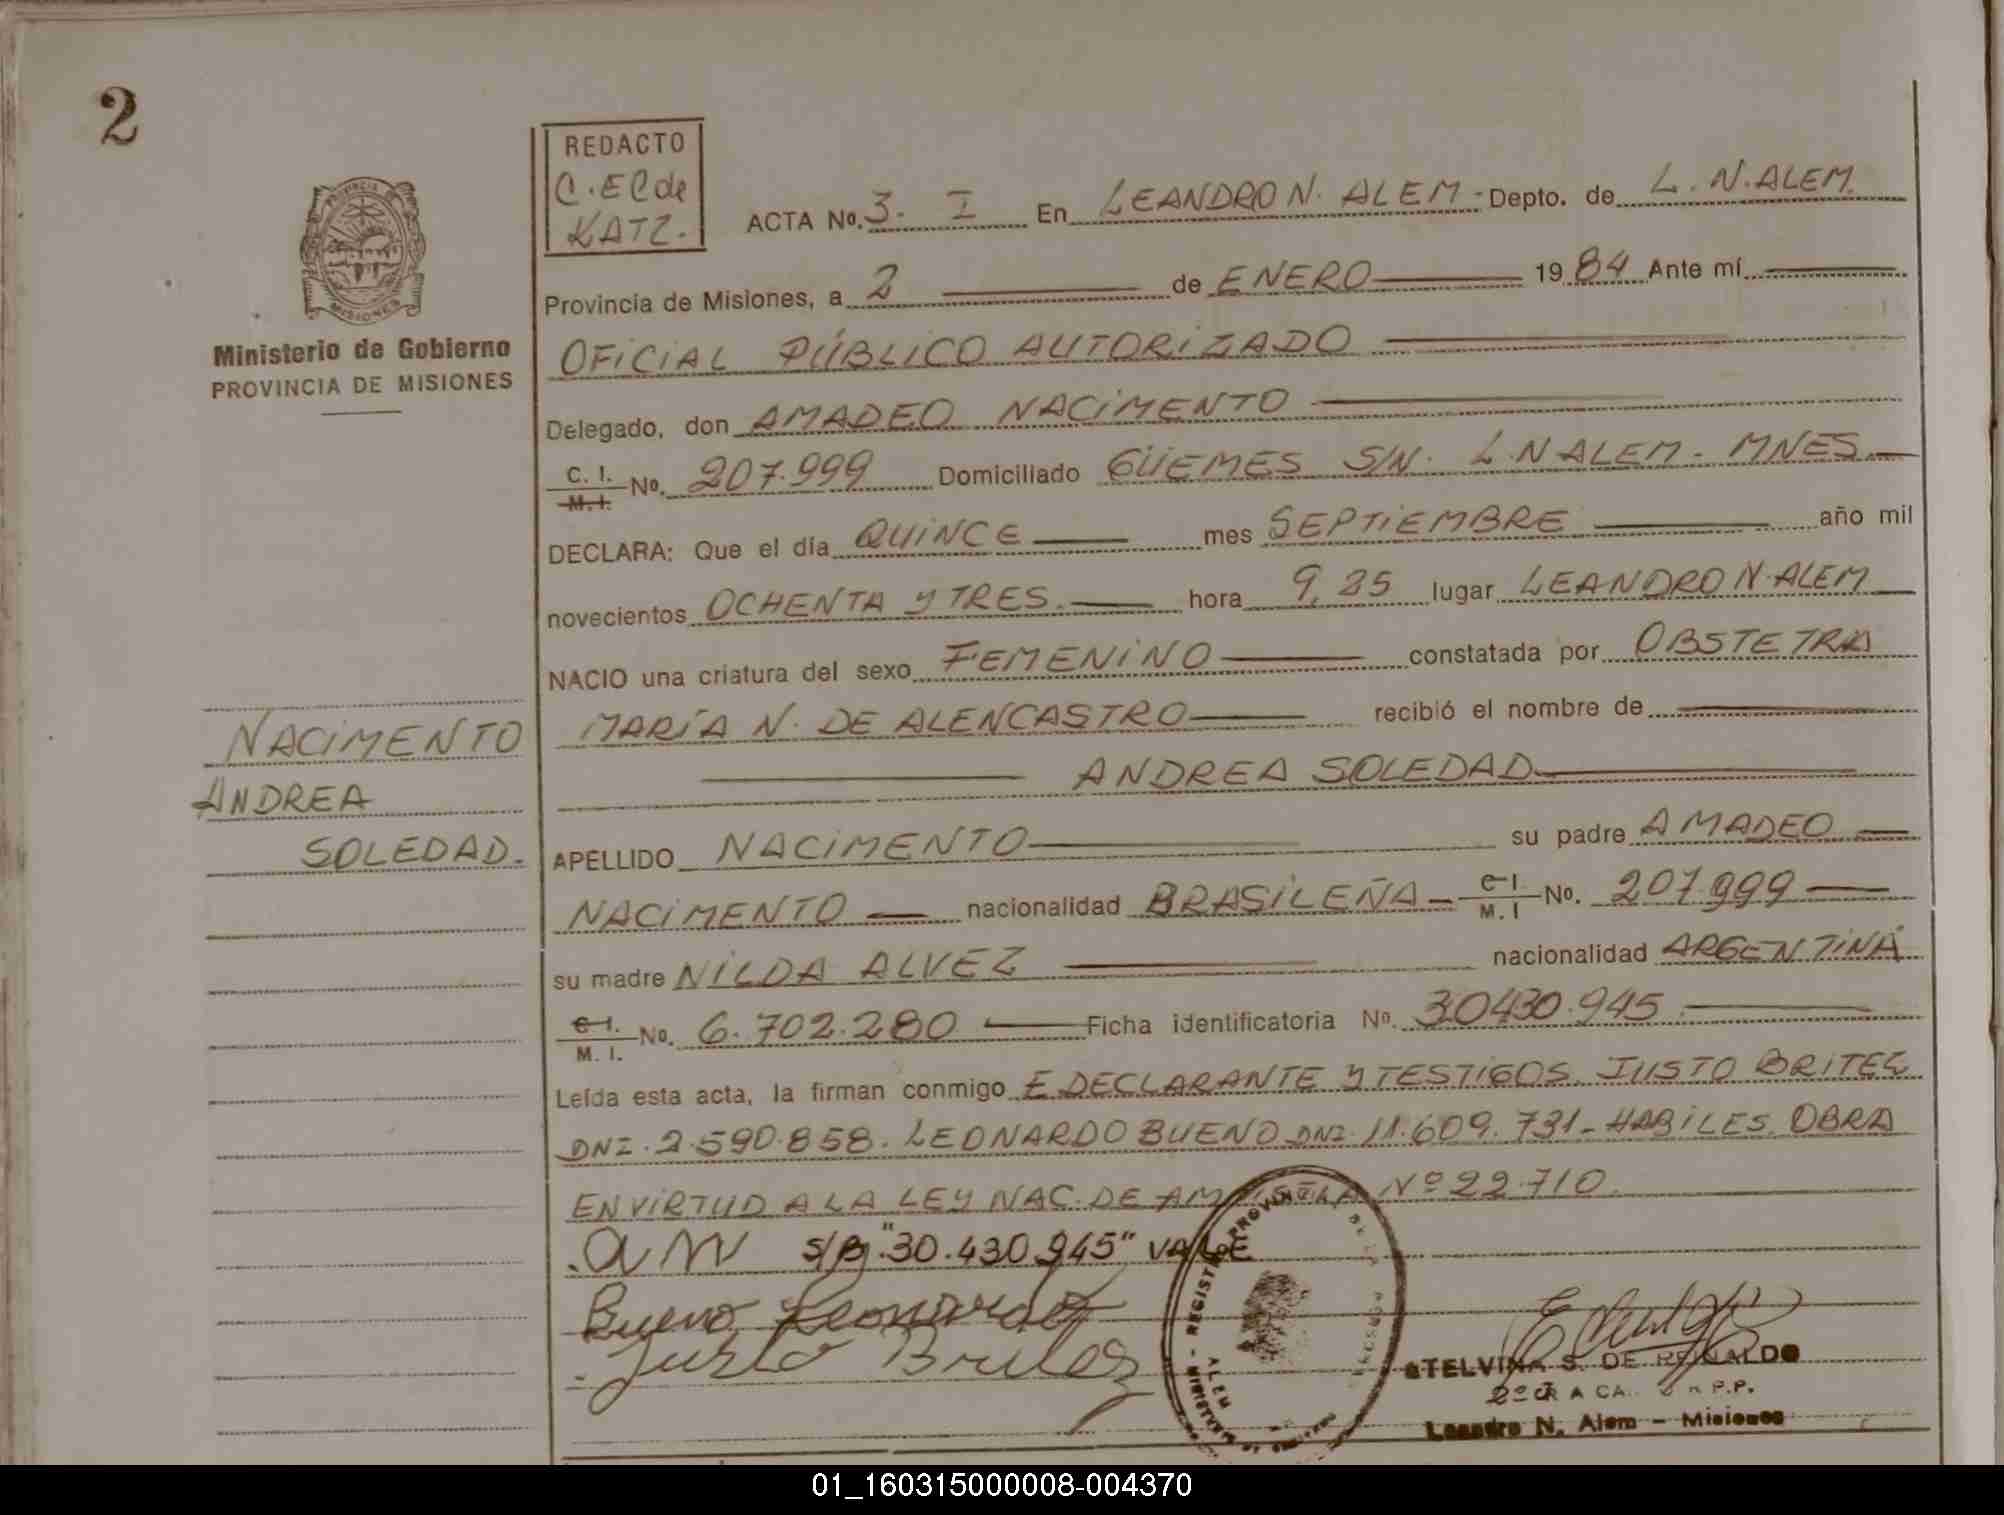 2
REDACTO
C. EC de
KATZ.
PROVINCIA
MISIONES
Ministerio de Gobierno
PROVINCIA DE MISIONES
ACTA No. 3. I En LEANDRO N. ALEM - Depto. de L. N. ALEM.
Provincia de Misiones, a 2 de ENERO 1984 Ante mí
OFICIAL PÚBLICO AUTORIZADO
Delegado, don AMADEO NACIMENTO
C. I. M. I. No. 207.999 Domiciliado GÜEMES S/N. L.N ALEM - MNES.
DECLARA: Que el día QUINCE mes SEPTIEMBRE año mil
novecientos OCHENTA Y TRES. hora 9,25 lugar LEANDRO N. ALEM
NACIO una criatura del sexo FEMENINO constatada por OBSTETRA
MARÍA N. DE ALENCASTRO recibió el nombre de
ANDREA SOLEDAD
NACIMENTO
ANDREA
SOLEDAD.
APELLIDO NACIMENTO su padre AMADEO
NACIMENTO nacionalidad BRASILEÑA C I. M. I No. 207.999
su madre NILDA ALVEZ nacionalidad ARGENTINA
C I. M. I. No. 6.702.280 Ficha identificatoria No. 30430.945
Leída esta acta, la firman conmigo E DECLARANTE Y TESTIGOS. JUSTO BRITEZ
DNI. 2.590.858. LEONARDO BUENO DNI. 11.609.731 - HABILES. OBRA
EN VIRTUD A LA LEY NAC. DE Nº 22.710.
S/B "30.430.945" VALE
Bueno Leonardo
Justo Britez
REGISTRO PROVINCIAL
ALEM
STELVINA S. DE REINALDO
Leandro N. Alem - Misiones
01_160315000008-004370